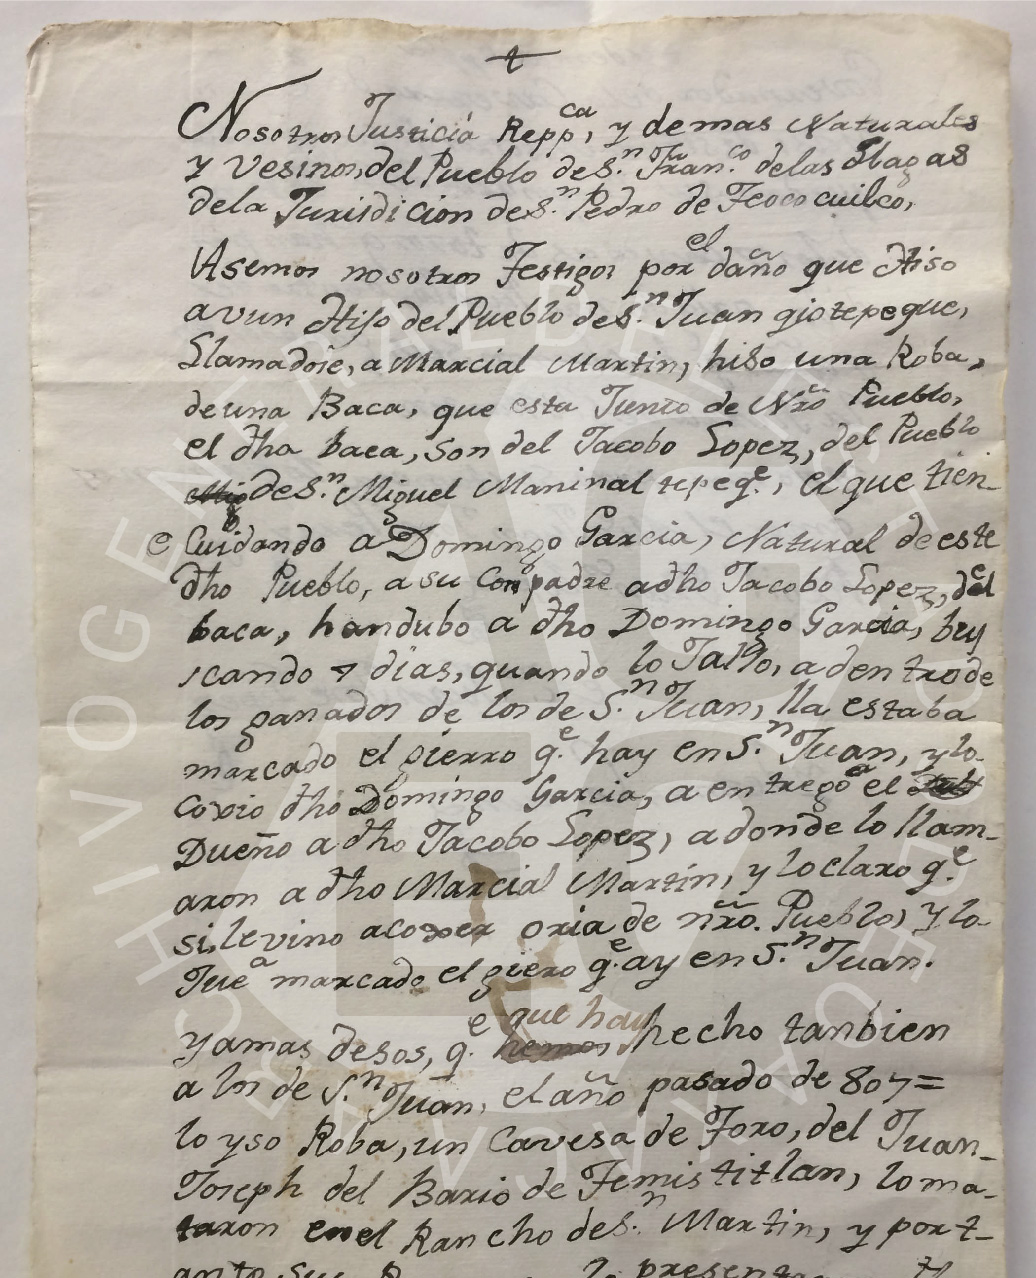 Nosotros Justicia Reppca, y demas Naturales
y Vesinos, del Pueblo de Sn. Franco. delas Llagas
dela Jurisdicion de Sn. Pedro de Teococuilco,
Asemos nosotros Testigos por el daño que Hiso
avun Hijo del Pueblo de Sn. Juan qiotepeque,
Llamadose, a Marcial Martin, hiso una Roba,
de una Baca, que esta Junto de Nro Pueblo,
el dho baca, son del Jacobo Lopez, del Pueblo
de Sn. Miguel Maninaltepeqe., el que tien-
e Cuidando a Domingo Garcia, Natural de este
dho Pueblo, a su Conpadre adho Jacobo Lopez, del
baca, handubo a dho Domingo Garcia, buy
scando 7 dias, quando lo Jallo, a dentro de
los ganados de los de Sn. Juan, lla estaba
marcado el gierro qe. hay en Sn. Juan, y lo-
covio dho Domingo Garcia, a entregó el
Dueño a dho Jacobo Lopez, a donde lo llam-
aron a dho Marcial Martin, y lo claro qe.
si, le vino acoxer oria de nro. Pueblo, y lo-
Jue a marcado el giero qe. ay en Sn. Juan.
yamas desos, qe. que hay hecho tanbien
a los de Sn. Juan, el año pasado de 807=
lo yso Roba, un Cavesa de Toro, del Juan-
Joseph del Bario de Temistitlan, lo ma-
taron en el Rancho de Sn. Martin, y port-
anto presentar
ARCHIVO GENERAL DEL
OAXACA